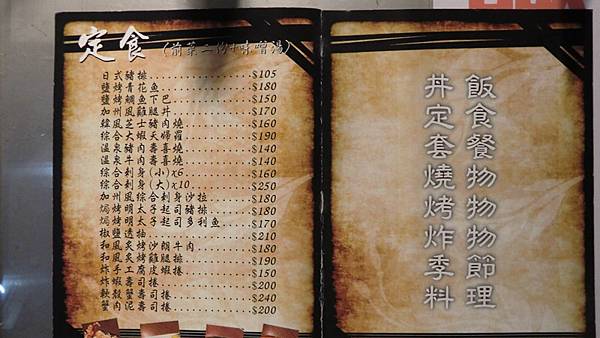 定食 (前菜二份+味噌湯)
日式豬排............$105
鹽烤青花魚............$180
鹽烤鯛魚下巴............$150
加州風雞腿丼............$170
韓風芝士豬肉燒............$160
綜合大蝦天婦羅............$190
溫泉豬肉壽喜燒............$140
溫泉牛肉壽喜燒............$140
綜合刺身(小)x6............$160
綜合刺身(大)x10............$250
加州風綜合刺身沙拉............$180
焗烤明太子起司豬排............$180
焗烤明太子起司多利魚............$170
椒鹽透抽............$210
和風炙烤沙朗牛肉............$180
和風炙烤雞腿排............$190
炸手工腐皮蝦捲............$150
炸蝦壽司捲............$200
軟殼蟹壽司捲............$240
蟹肉泥壽司捲............$200
飯食餐物物物節理
丼定套燒烤炸季料